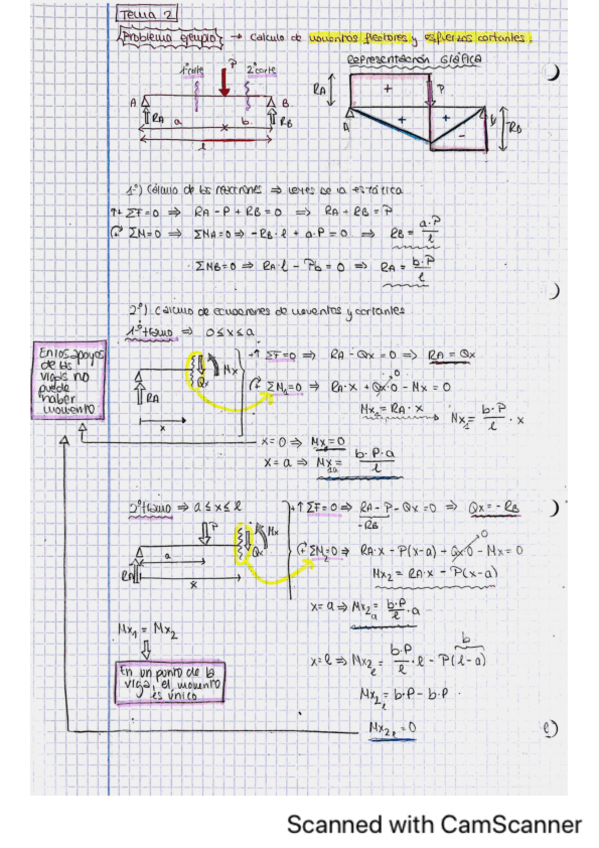 Tema 2
Problema ejemplo → Cálculo de momentos flectores y esfuerzos cortantes.
Representación Gráfica
1º corte P 2º corte
A B
RA a b RB
x
l
RA + P
A + + B
- RB
1º) Cálculo de las reacciones ⇒ leyes de la estática
↑+ ΣF=0 ⇒ RA - P + RB = 0 ⇒ RA + RB = P
ΣM=0 ⇒ ΣMA=0 ⇒ -RB·l + a·P = 0 ⇒ RB = a·P / l
ΣMB=0 ⇒ RA·l - Pb = 0 ⇒ RA = b·P / l
2º) Cálculo de ecuaciones de momentos y cortantes
1º tramo ⇒ 0≤x≤a
En los apoyos
de las
vigas no
puede
haber
momento
Qx Mx
RA
x
+↑ ΣF=0 ⇒ RA - Qx = 0 ⇒ RA = Qx
ΣM=0 ⇒ RA·x + Qx·0 - Mx = 0
Mx1 = RA·x → Mx1 = b·P / l · x
x=0 ⇒ Mx=0
x=a ⇒ Mx1a = b·P·a / l
2º tramo ⇒ a≤x≤l
P Mx
a Qx
RA x
+↑ ΣF=0 ⇒ RA - P - Qx = 0 ⇒ Qx = -RB
-RB
ΣM2=0 ⇒ RA·x - P(x-a) - Qx·0 - Mx = 0
Mx2 = RA·x - P(x-a)
x=a ⇒ Mx2a = b·P / l · a
Mx1 = Mx2
En un punto de la
viga, el momento
es único
x=l ⇒ Mx2l = b·P / l · l - P(l-a)
b
Mx2l = b·P - b·P
Mx2l = 0
Scanned with CamScanner